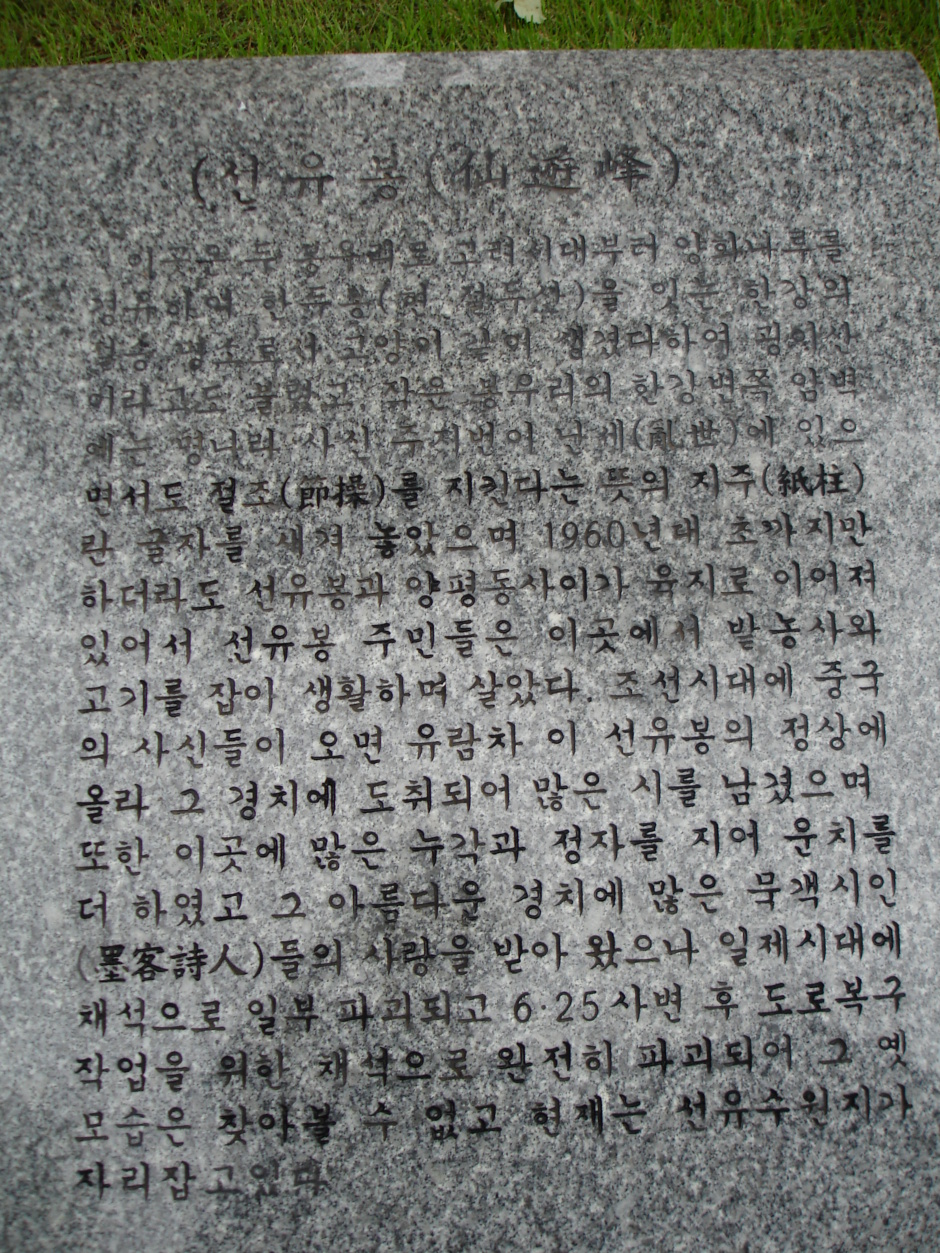 (선유봉(仙遊峰)
이곳은 두 봉우래로 고려시대부터 양화나루를
경유하여 한두봉(현 절두산)을 잇는 한강의
명소로서 고양이 같이 생겼다하여 굉이산
이라고도 불렀고 작은 봉우리의 한강변쪽 암벽
에는 명나라 사신 주지번이 난세(亂世)에 있으
면서도 절조(即操)를 지킨다는 뜻의 지주(紙柱)
란 글자를 새겨 놓았으며 1960년대 초까지만
하더라도 선유봉과 양평동사이가 육지로 이어져
있어서 선유봉 주민들은 이곳에서 밭농사와
고기를 잡아 생활하며 살았다. 조선시대에 중국
의 사신들이 오면 유람차 이 선유봉의 정상에
올라 그 경치에 도취되어 많은 시를 남겼으며
또한 이곳에 많은 누각과 정자를 지어 운치를
더 하였고 그 아름다운 경치에 많은 묵객시인
(墨客詩人)들의 사랑을 받아 왔으나 일제시대에
채석으로 일부 파괴되고 6·25사변 후 도로복구
작업을 위한 채석으로 완전히 파괴되어 그 옛
모습은 찾아볼 수 없고 현재는 선유수원지가
자리잡고있다